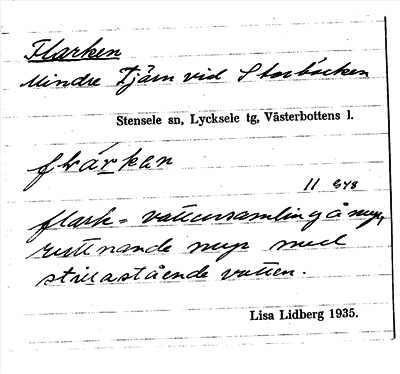 Flarken
Mindre tjärn vid Storbäcken
Stensele sn, Lycksele tg, Västerbottens l.
flárkən
11 648
flark = vattensamling å myr,
ruttnande myr med
stillastående vatten.
Lisa Lidberg 1935.